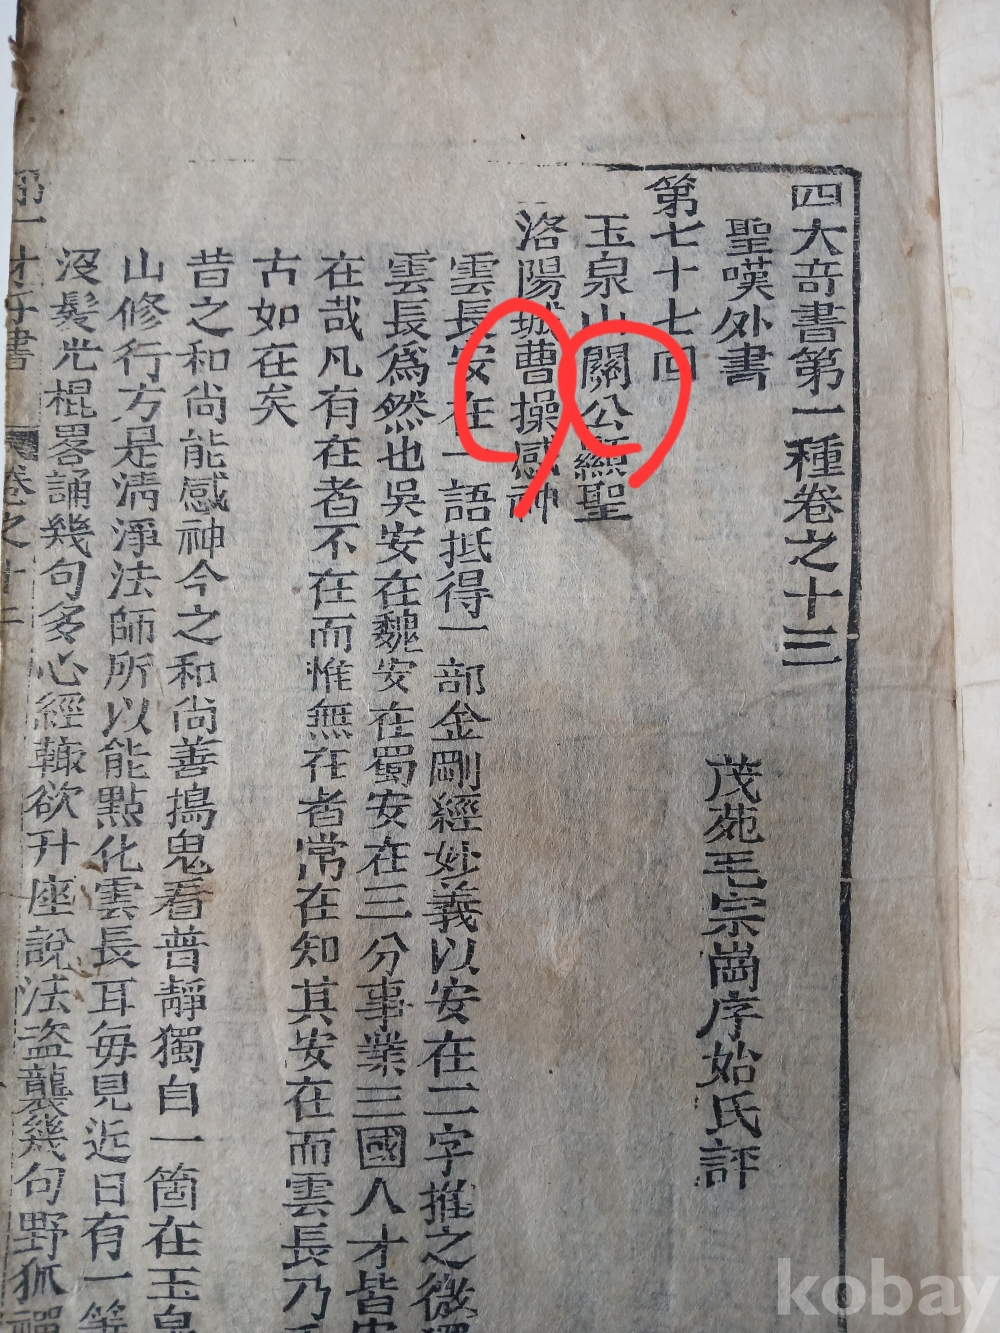 四大奇書第一種卷之十三
聖嘆外書
茂苑毛宗崗序始氏評
第七十七回
玉泉山關公顯聖
洛陽城曹操感神
雲長安在一語抵得一部金剛經妙義以安在二字推之微
雲長為然也吳安在魏安在蜀安在三分事業三國人才皆安
在哉凡有在者不在而惟無在者常在知其安在而雲長乃
古如在矣
昔之和尚能感神今之和尚善搗鬼看普靜獨自一箇在玉泉
山修行方是清淨法師所以能點化雲長耳每見近日有一等
沒髮光棍畧誦幾句多心經輙欲升座說法盜襲幾句野狐禪
第一才子書
卷之十三
kobay